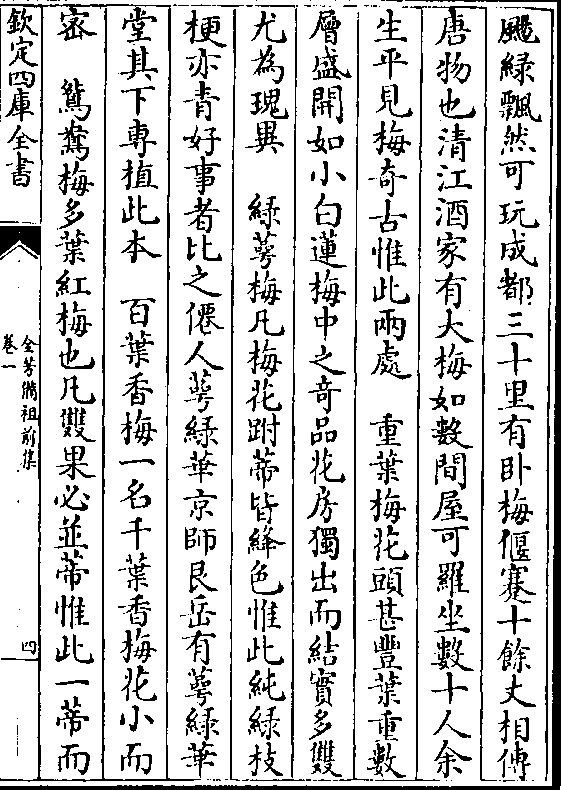 颺綠飄然可玩成都三十里有卧梅偃蹇十餘丈相傳
唐物也清江酒家有大梅如數間屋可羅坐數十人余
生平見梅奇古惟此兩處　重葉梅花頭甚豐葉重數
層盛開如小白蓮梅中之奇品花房獨出而結實多雙
尤為瑰異　綠萼梅凡梅花跗蒂皆絳色惟此純綠枝
梗亦青好事者比之僊人萼綠華京師艮岳有萼綠華
堂其下專植此本　百葉香梅一名千葉香梅花小而
宻　鴛鴦梅多葉紅梅也凡雙果必並蒂惟此一蒂而
欽定四庫全書
全芳備祖前集
卷一
四